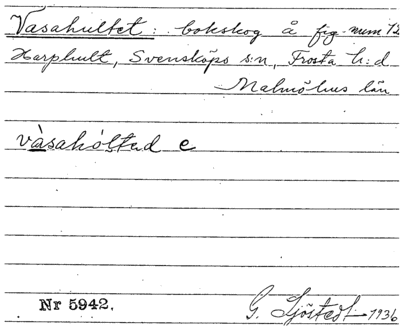 Vasahultet: bokskog å fig. num 72
Harphult, Svensköps s:n, Frosta h:d
Malmöhus län
vàsahóltəd e
Nr 5942.
G. Sjöstedt 1936